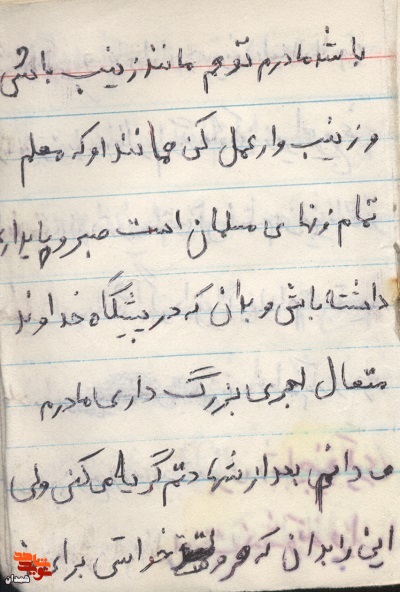 باشد مادرم تو هم مانند زینب باش
و زینب وار عمل کن همانند او که معلم
تمام زنهای مسلمان است صبر و پایداری
داشته باش و بدان که در پیشگاه خداوند
متعال اجری بزرگ داری مادرم
می دانم بعد از شهادتم گریه می کنی ولی
این را بدان که هر وقت خواستی برای
همدان